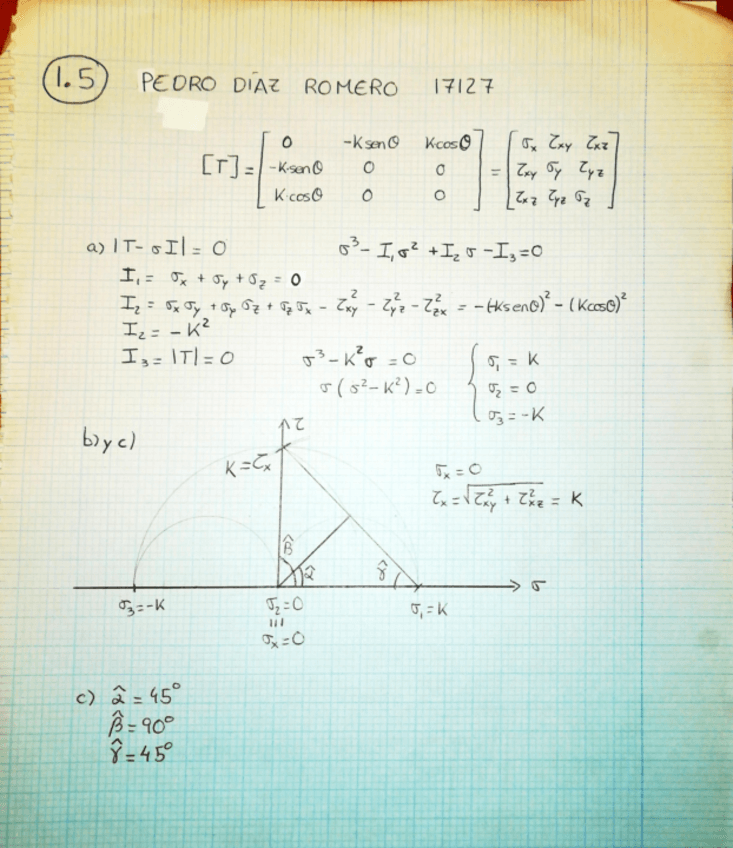 1.5 PEDRO DÍAZ ROMERO 17127
[T] = [ 0 -K senθ K cosθ ; -K·senθ 0 0 ; K·cosθ 0 0 ] = [ σx τxy τxz ; τxy σy τyz ; τxz τyz σz ]
a) |T - σI| = 0 σ³ - I₁σ² + I₂σ - I₃ = 0
I₁ = σx + σy + σz = 0
I₂ = σxσy + σyσz + σzσx - τ²xy - τ²yz - τ²zx = -(-K senθ)² - (K cosθ)²
I₂ = -K²
I₃ = |T| = 0 σ³ - K²σ = 0 { σ₁ = K
σ(σ² - K²) = 0 σ₂ = 0
σ₃ = -K
b) y c) τ
K = τx σx = 0
τx = √(τ²xy + τ²xz) = K
β̂ α̂ γ̂ σ
σ₃ = -K σ₂ = 0 σ₁ = K
III
σx = 0
c) α̂ = 45°
β̂ = 90°
γ̂ = 45°